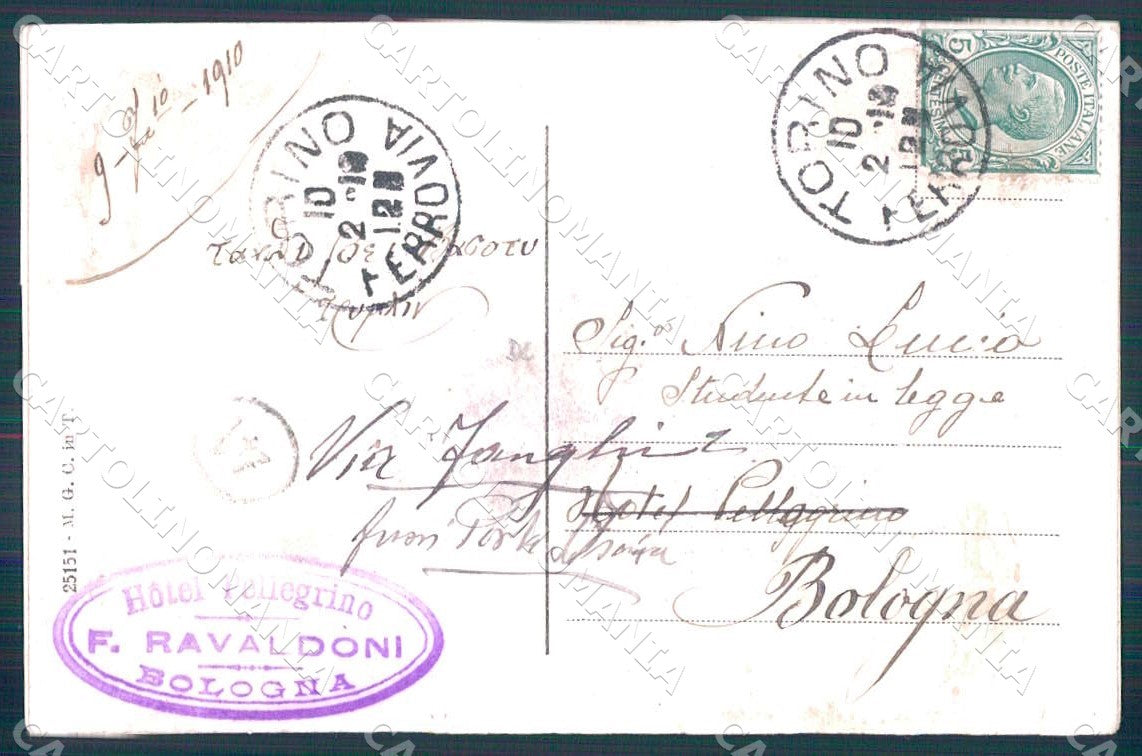 9 - 1910
TORINO
10
2-10
12
FERROVIA
TORINO
10
2-10
12
FERROVIA
POSTE ITALIANE
5
Sig.or Nino Lucio
Studente in legge
Via Zanghi 2
Hotel Pellegrino
fuori Porta
Bologna
25151 - M. G. C. in T.
Hôtel Pellegrino
F. RAVALDONI
BOLOGNA
CARTOLINOMANIA